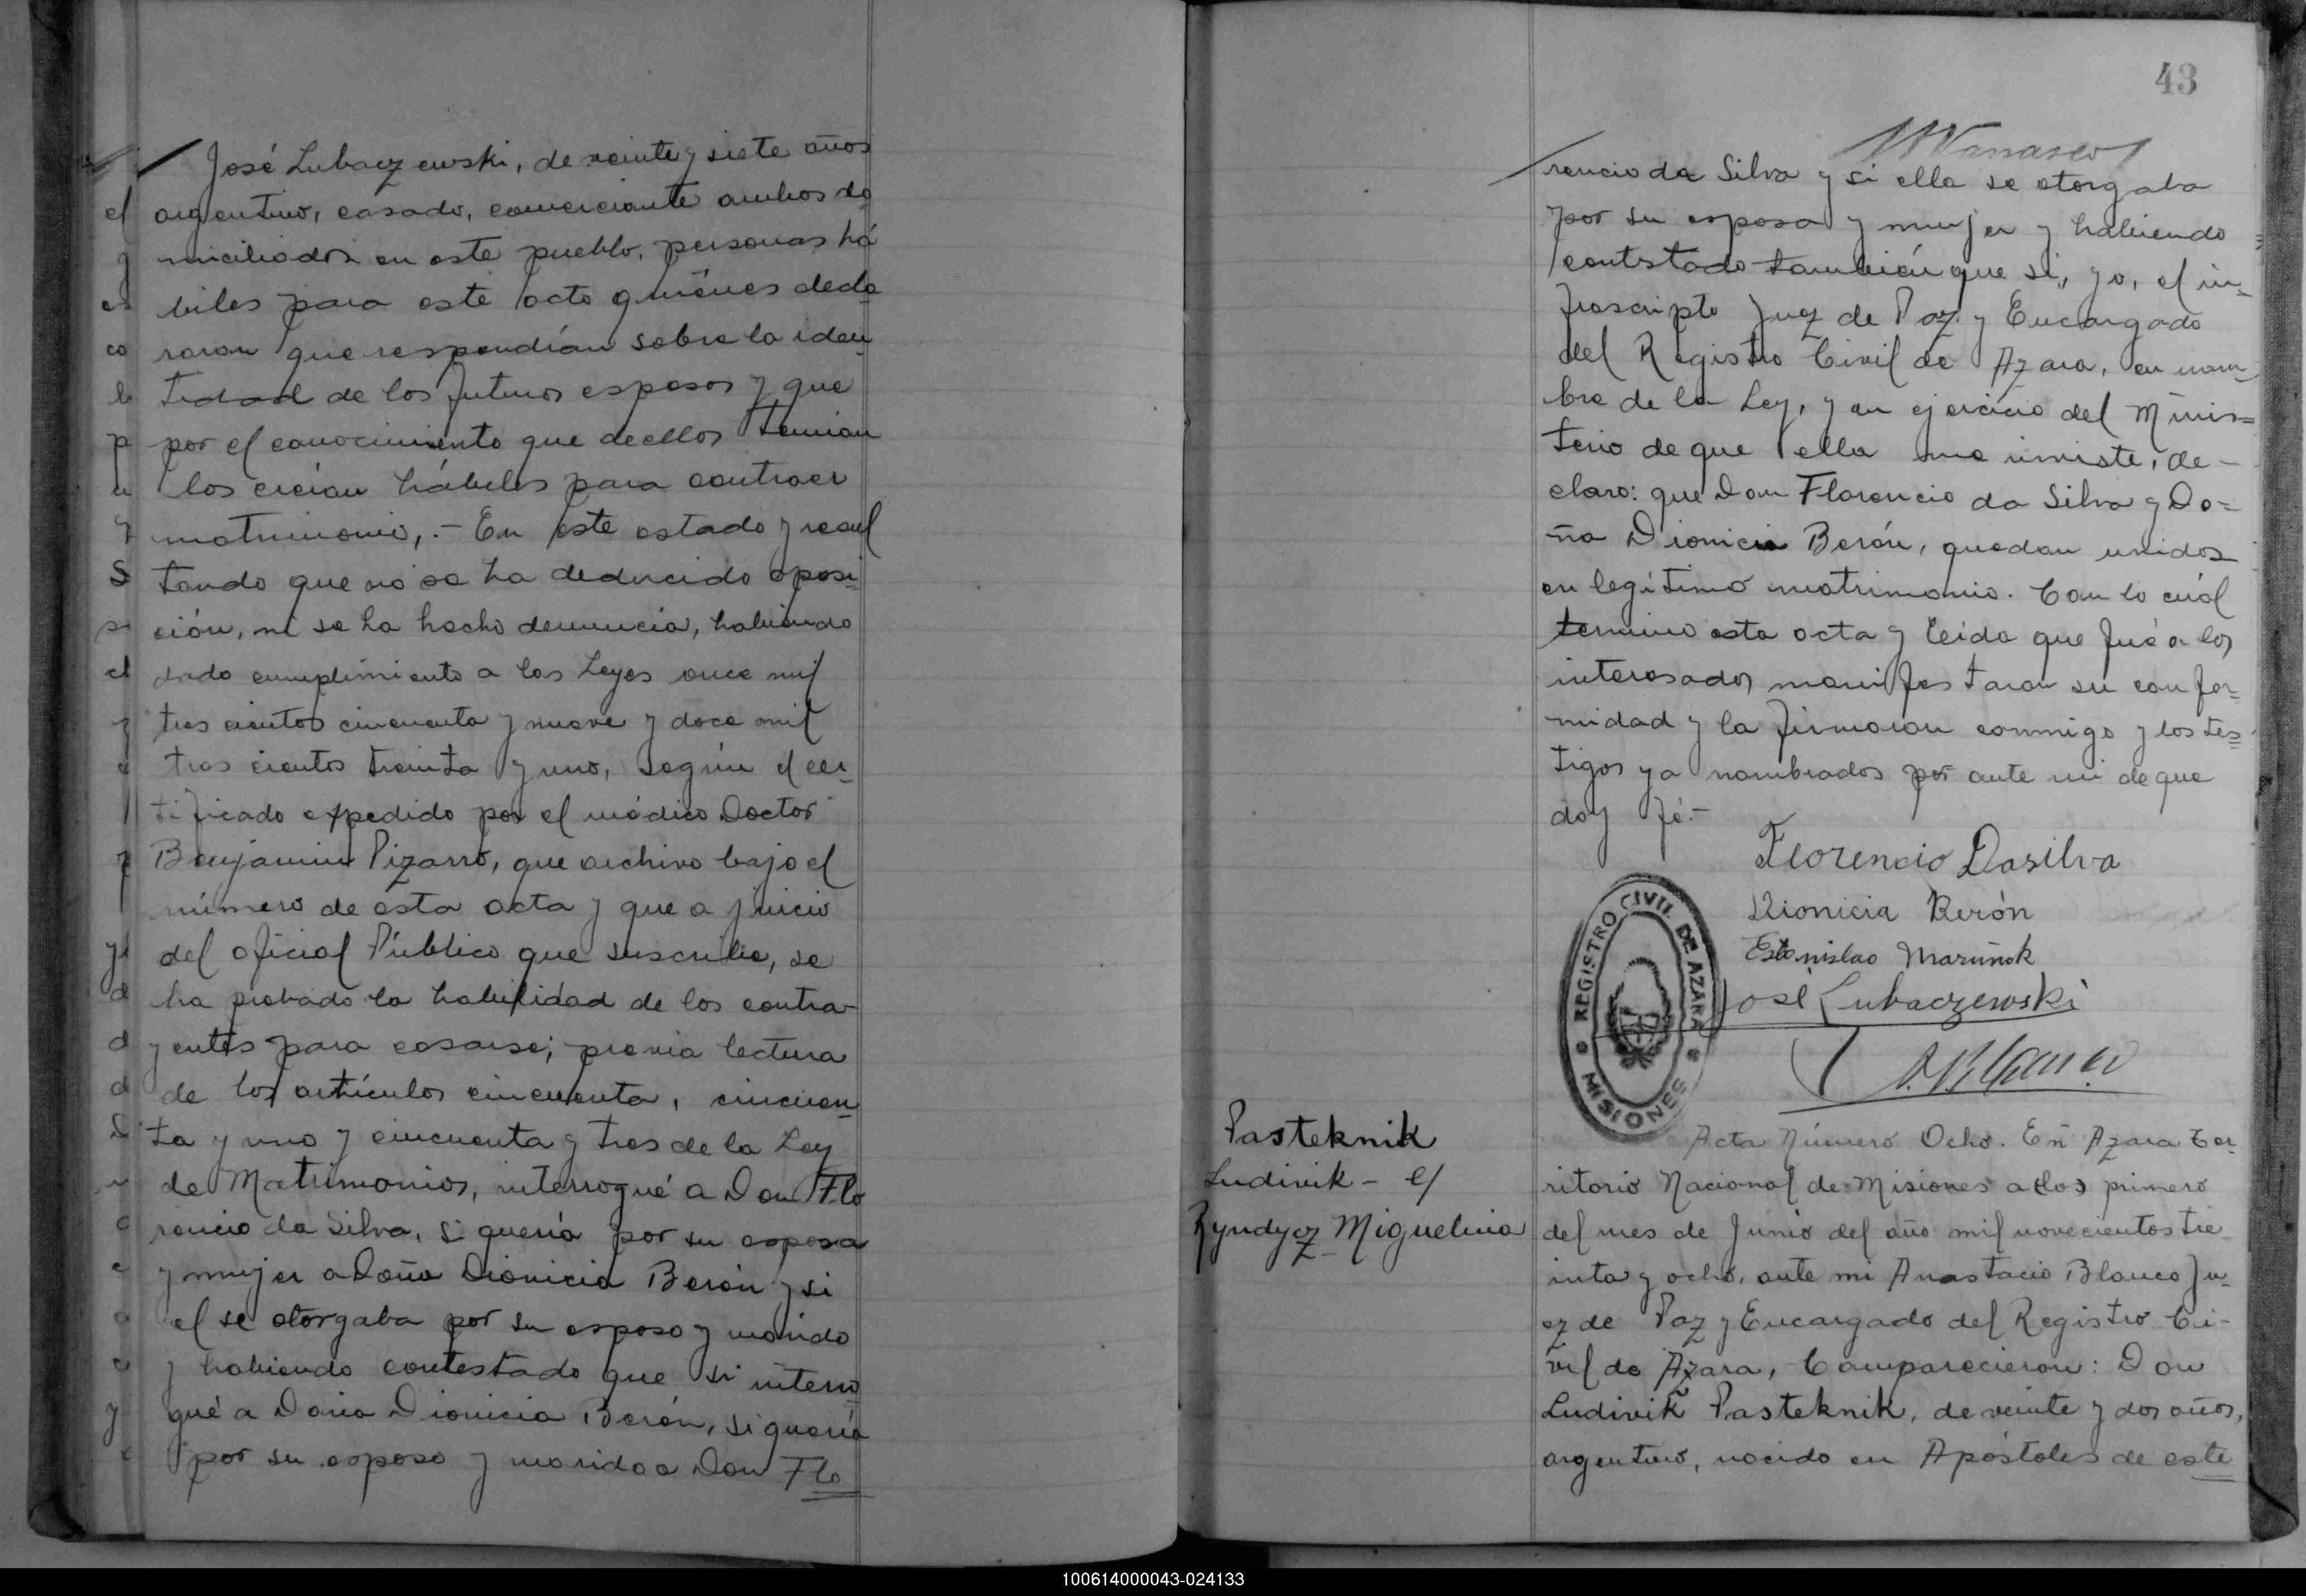 José Lubaczewski, de veinte y siete años
argentino, casado, comerciante ambos do
miciliados en este pueblo, personas há
biles para este acto quiénes decla
raron que respondían sobre la iden
tidad de los futuros esposos y que
por el conocimiento que de ellos tenian
los creian hábiles para contraer
matrimonio,.- En este estado y resul
tando que no se ha deducido oposi
ción, ni se ha hecho denuncia, habiendo
dado cumplimiento a las Leyes once mil
tres cientos cincuenta y nueve y doce mil
tres cientos treinta y uno, según el cer-
tificado expedido por el médico Doctor
Benjamin Pizarro, que archivo bajo el
número de esta acta y que a juicio
del oficial Público que suscribe, se
ha probado la habilidad de los contra-
yentes para casarse; previa lectura
de los artículos cincuenta, cincuen
ta y uno y cincuenta y tres de la Ley
de Matrimonios, interrogué a Don Flo
rencio da Silva, si quería por su esposa
y mujer a Doña Dionicia Berón y si
el se otorgaba por su esposo y marido
y habiendo contestado que si interro
gué a Doña Dionicia Berón, si quería
por su esposo y marido a Don Flo
43
rencio da Silva y si ella se otorgaba
por su esposa y mujer y habiendo
contestado también que si, yo, el in-
frascripto Juez de Paz y Encargado
del Registro Civil de Azara, en nom-
bre de la Ley, y en ejercicio del Minis-
terio de que ella me inviste, de-
claro: que Don Florencio da Silva y Do-
ña Dionicia Berón, quedan unidos
en legítimo matrimonio. Con lo cuál
termino esta acta y leida que fué a los
interesados manifestaron su confor-
midad y la firmaron conmigo y los tes-
tigos ya nombrados por ante mi de que
doy fé.-
Florencio Dasilva
Dionicia Berón
Estanislao Mariñok
José Lubaczewski
REGISTRO CIVIL DE AZARA
MISIONES
Pasteknik
Ludivik - c/
Zyndycz Miguelina
Acta Número Ocho. En Azara Ter-
ritorio Nacional de Misiones a los primero
del mes de Junio del año mil novecientos tre
inta y ocho, ante mi Anastacio Blanco Ju-
ez de Paz y Encargado del Registro Ci-
vil de Azara, Comparecieron: Don
Ludivik Pasteknik, de veinte y dos años,
argentino, nacido en Apóstoles de este
100614000043-024133